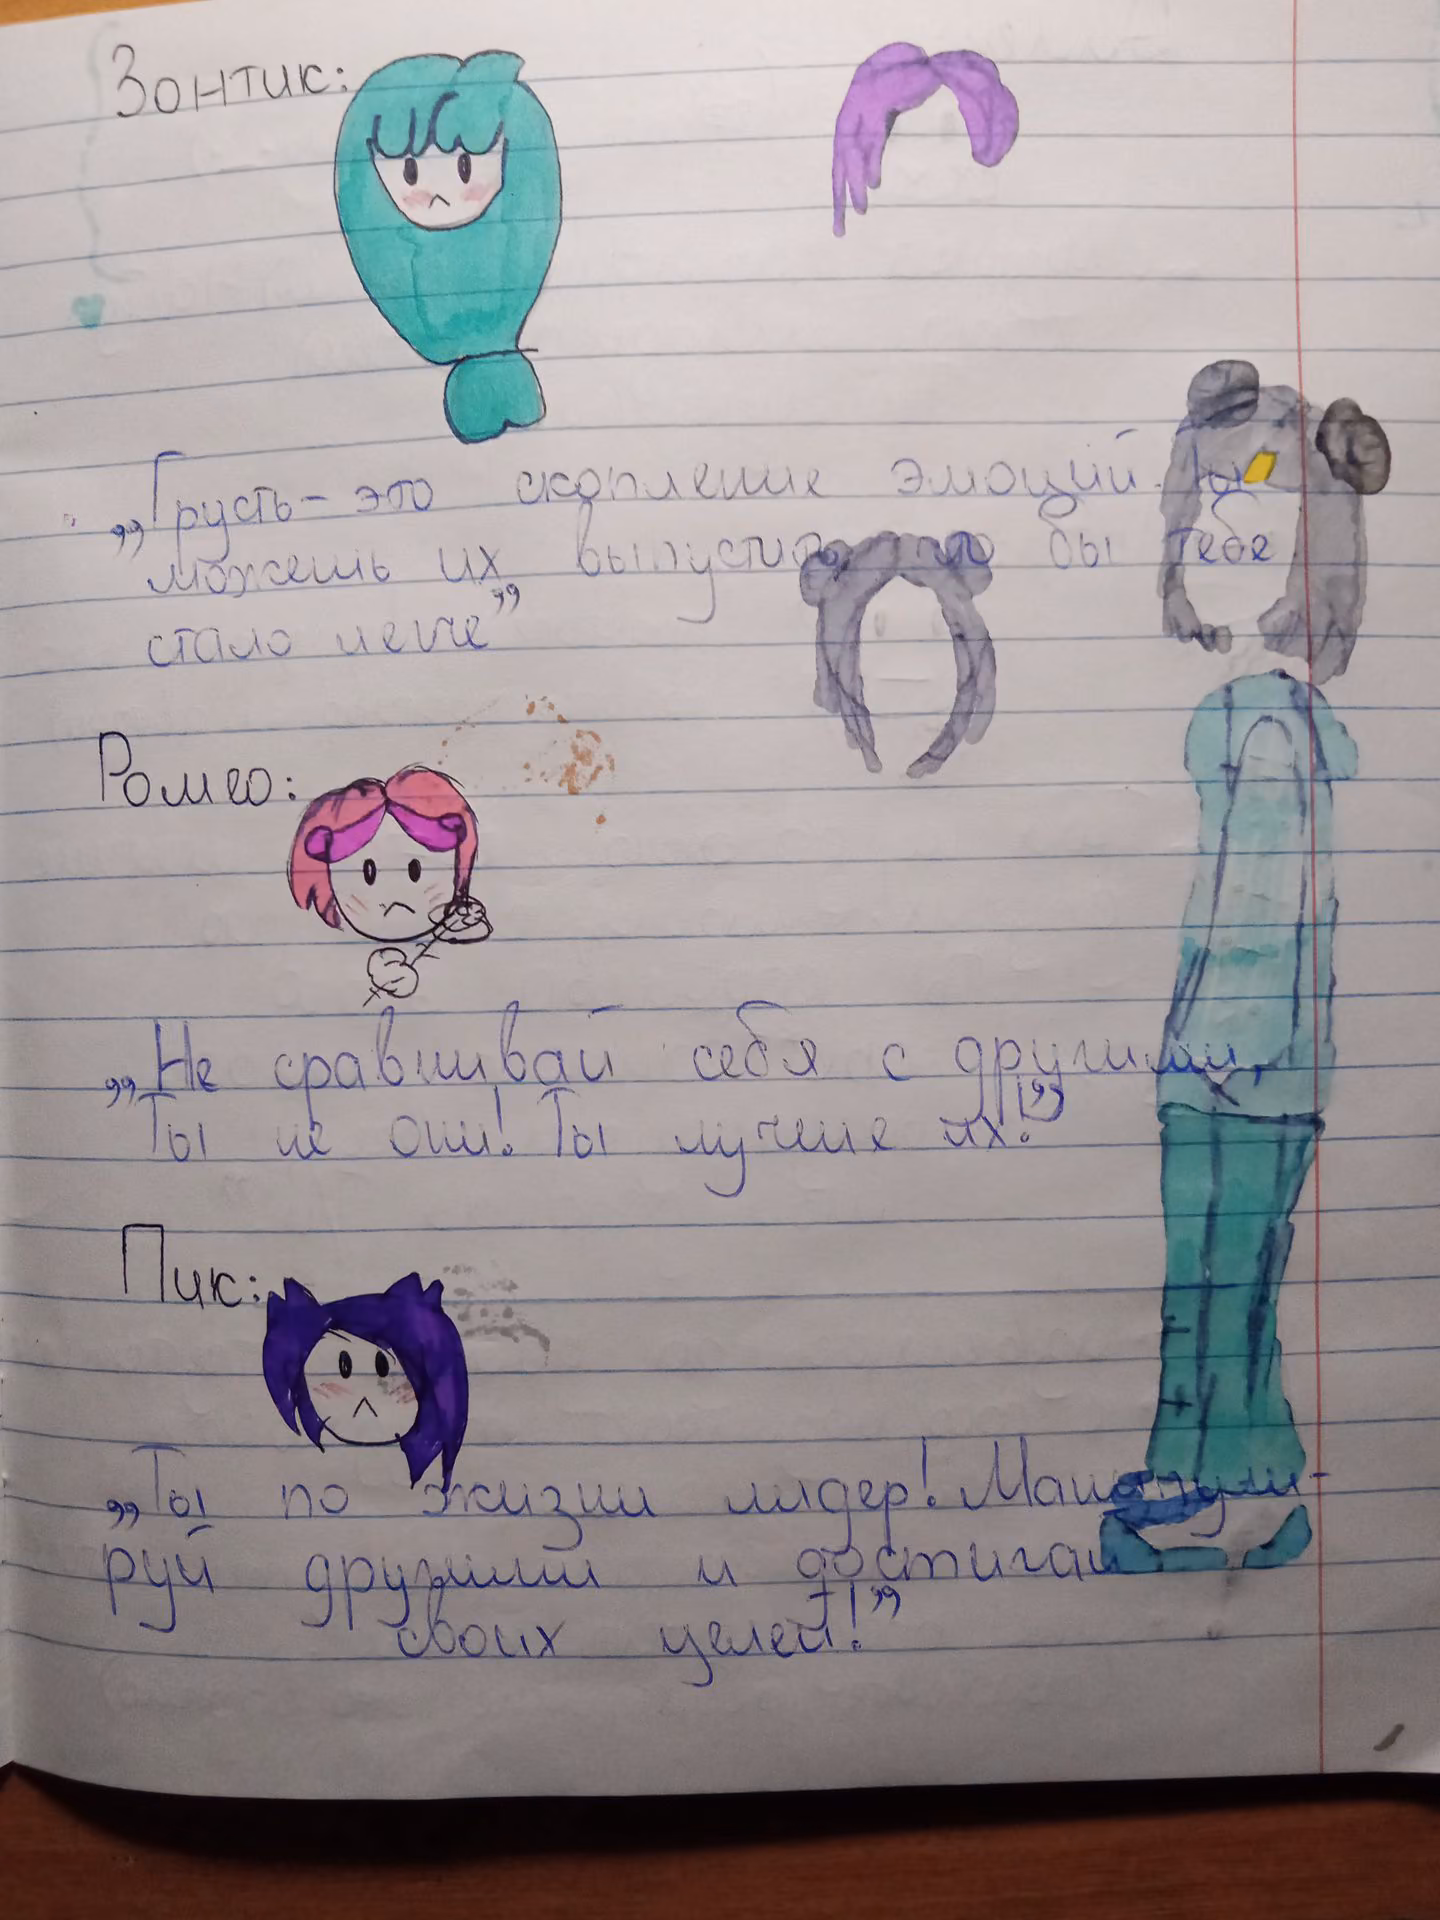 Зонтик:
„Грусть – это скопление эмоций. Ты
можешь их выпустить, что бы тебе
стало легче”
Ромео:
„Не сравнивай себя с другими,
Ты не они! Ты лучше их!”
Пик:
„Ты по жизни лидер! Манипули-
руй другими и достигай
своих целей!”